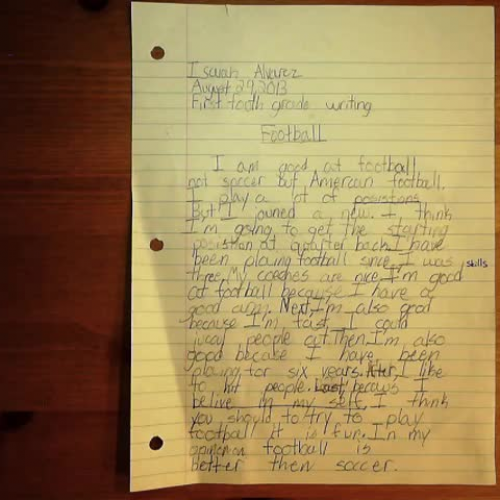 Isaiah Alvarez
August 29, 2013
First footh grade writing
Football
I am good at football
not soccer but American football.
I play a lot of posistans
But I joined a new. I think
I'm going to get the starting
posistian at quarter back. I have
been plaing football since I was skills
three. My coaches are nice. I'm good
at football because I have a
good arm. Next, I'm also good
because I'm fast, I could
juke people out. Then, I'm also
good becase I have been
plaing for six years. After, I like
to hit people. Last, becaus I
belive in my self, I think
you should to try to play
football it is fun. In my
football is
better then soccer.